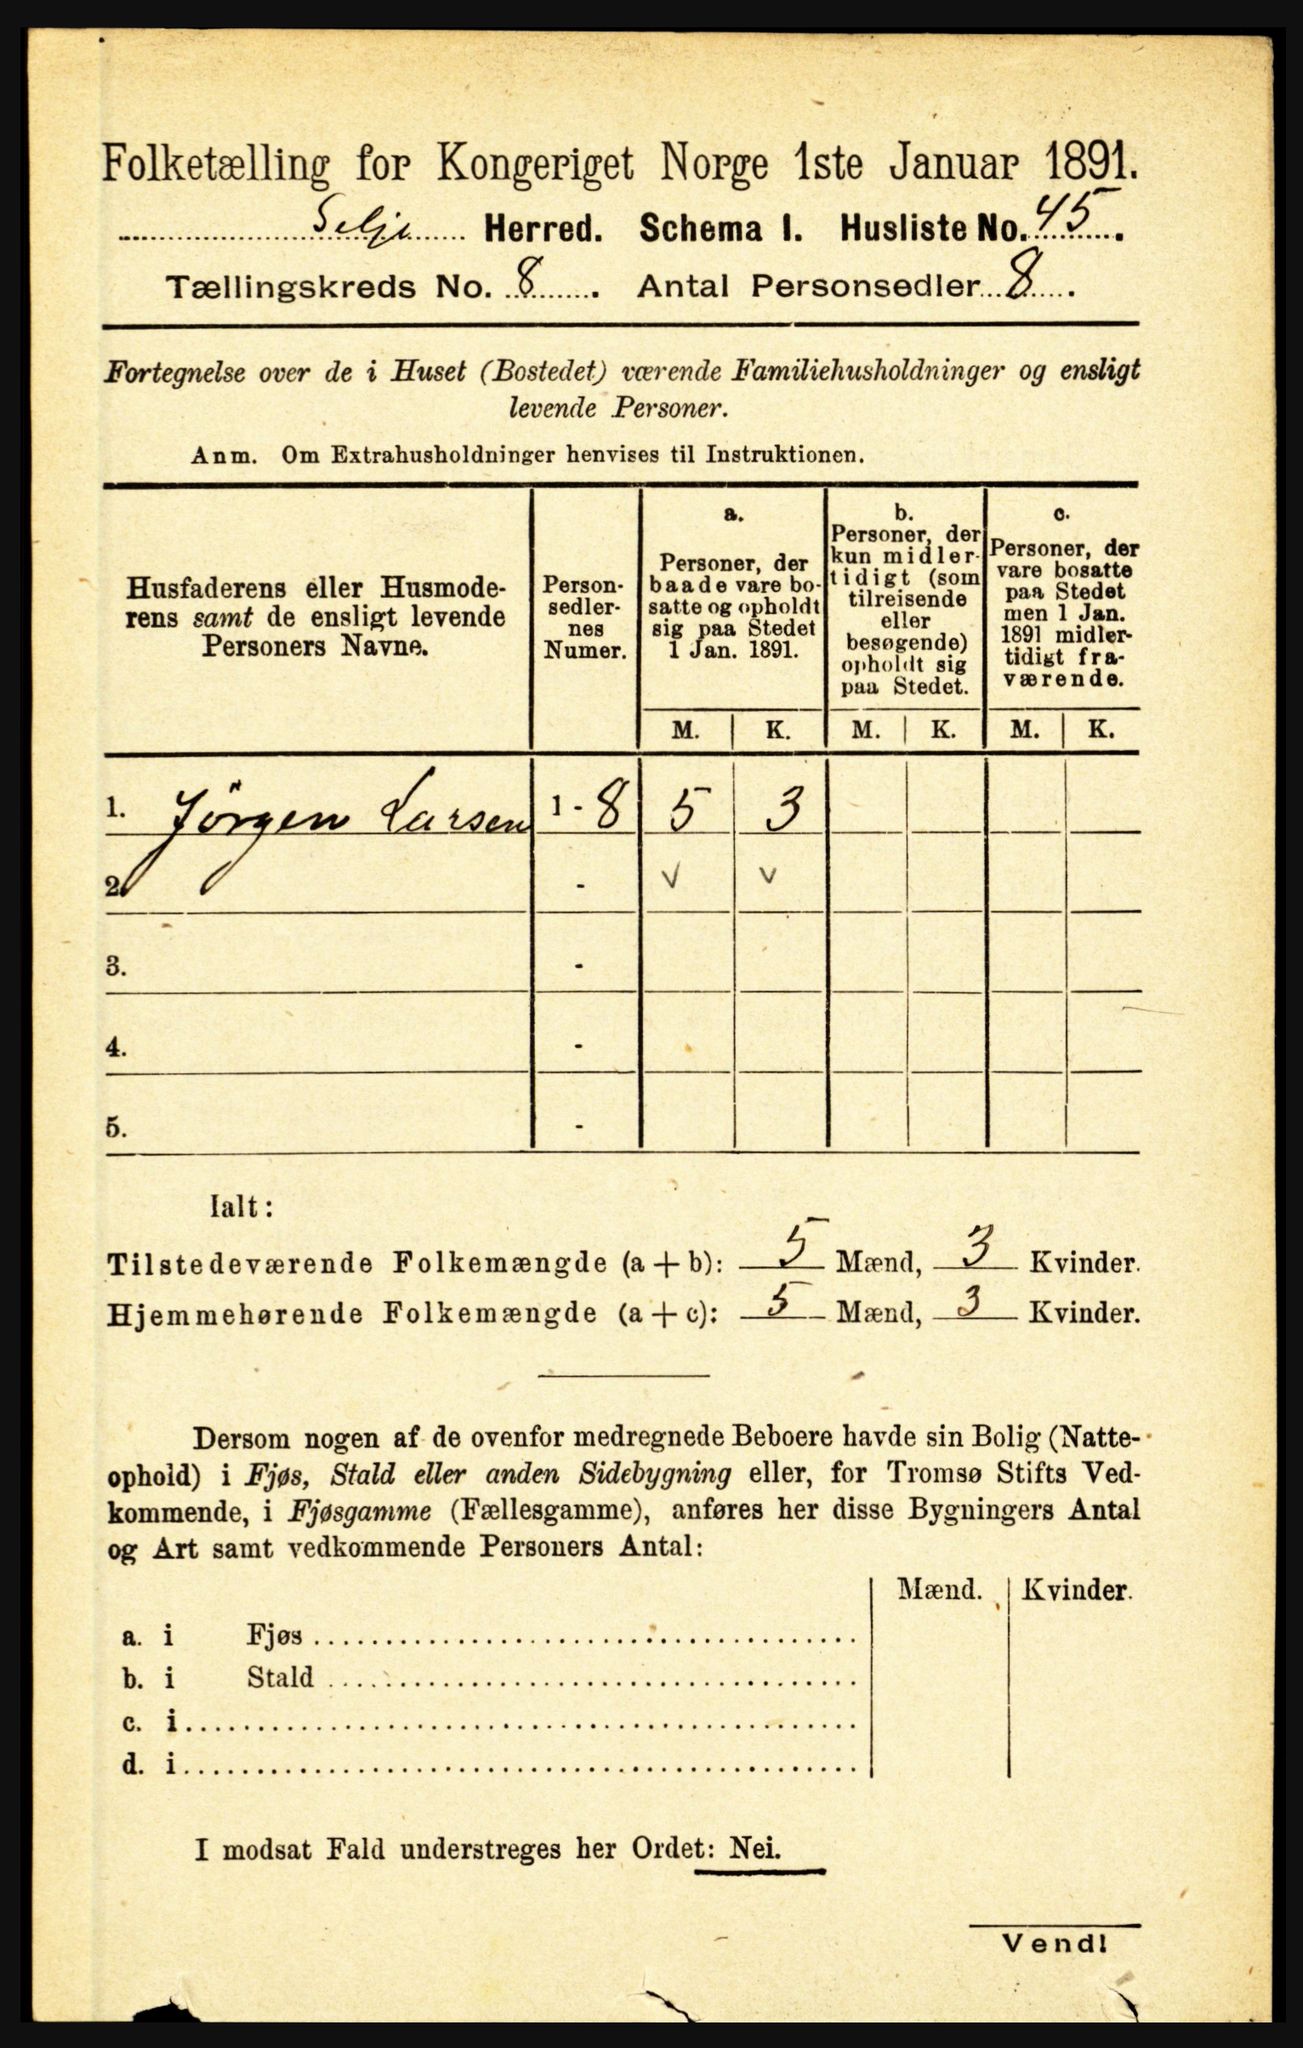 Folketælling for Kongeriget Norge 1ste Januar 1891.
Selje Herred. Schema I. Husliste No. 45.
Tællingskreds No. 8. Antal Personsedler 8.
Fortegnelse over de i Huset (Bostedet) værende Familiehusholdninger og ensligt
levende Personer.
Anm. Om Extrahusholdninger henvises til Instruktionen.
Husfaderens eller Husmode-
rens samt de ensligt levende
Personers Navne.
Person-
sedler-
nes
Numer.
a.
Personer, der
baade vare bo-
satte og opholdt
sig paa Stedet
1 Jan. 1891.
b.
Personer, der
kun midler-
tidigt (som
tilreisende
eller
besøgende)
opholdt sig
paa Stedet.
c.
Personer, der
vare bosatte
paa Stedet
men 1 Jan.
1891 midler-
tidigt fra-
værende.
M. K. M. K. M. K.
1. Jörgen Larsen 1 - 8 5 3
2. - v v
3. -
4. -
5. -
Ialt:
Tilstedeværende Folkemængde (a + b): 5 Mænd, 3 Kvinder.
Hjemmehørende Folkemængde (a + c): 5 Mænd, 3 Kvinder.
Dersom nogen af de ovenfor medregnede Beboere havde sin Bolig (Natte-
ophold) i Fjøs, Stald eller anden Sidebygning eller, for Tromsø Stifts Ved-
kommende, i Fjøsgamme (Fællesgamme), anføres her disse Bygningers Antal
og Art samt vedkommende Personers Antal:
Mænd. Kvinder.
a. i Fjøs
b. i Stald
c. i
d. i
I modsat Fald understreges her Ordet: Nei.
Vend!